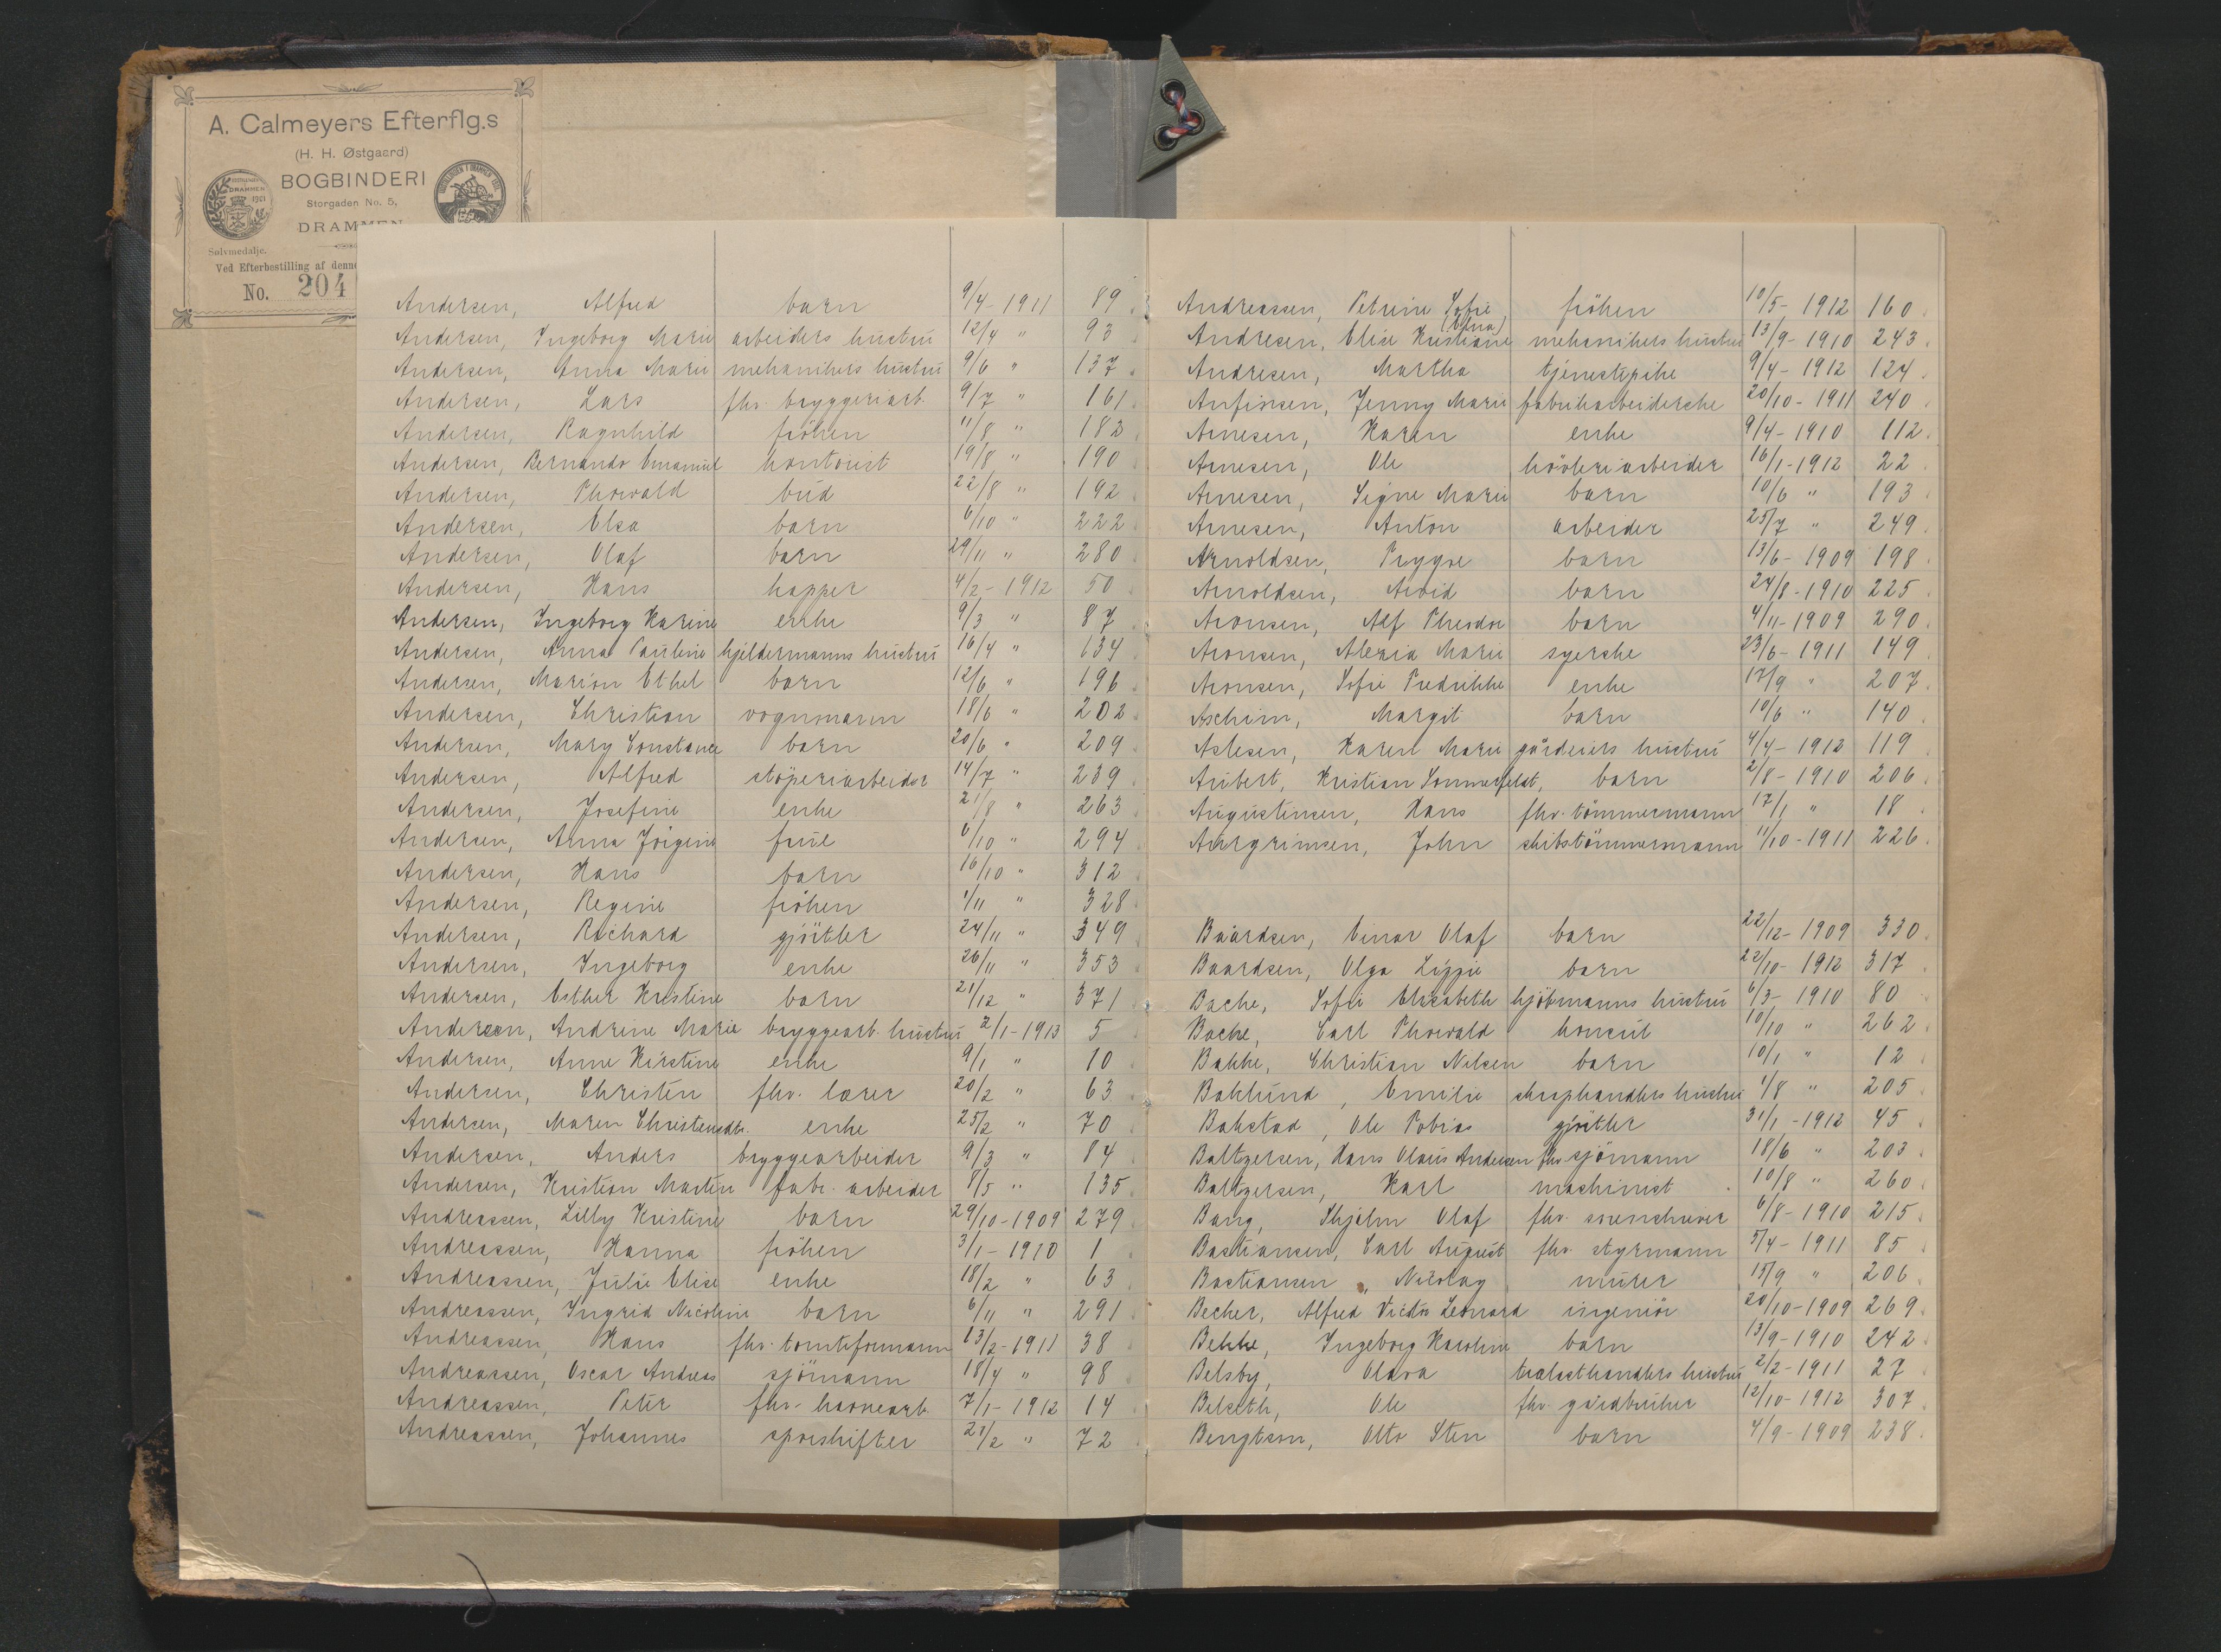 A. Calmeyers Efterflg.s
(H. H. Østgaard)
BOGBINDERI
Storgaden No. 5,
DRAMMEN
DRAMMEN
1901
Sølvmedalje.
Ved Efterbestilling af denne
No. 204
Andersen, Alfred barn 9/4-1911 89.
Andersen, Ingeborg Marie arbeiders hustru 12/4 " 93
Andersen, Anna Marie mekanikers hustru 9/6 " 137.
Andersen, Lars fhv. bryggeriarb. 9/7 " 161.
Andersen, Ragnhild fröken 11/8 " 182.
Andersen, Bernando Emanuel kontorist 19/8 " 190.
Andersen, Thorvald bud 22/8 " 192.
Andersen, Elsa barn 6/10 " 222.
Andersen, Olaf barn 29/11 " 280.
Andersen, Hans kapper 4/2-1912 50.
Andersen, Ingeborg Karine enke 9/3 " 87.
Andersen, Anna Pauline kjeldermanns hustru 16/4 " 134.
Andersen, Marion Ethel barn 12/6 " 196.
Andersen, Christian vognmann 18/6 " 202.
Andersen, Mary Constance barn 20/6 " 209.
Andersen, Alfred stöperiarbeider 14/7 " 239.
Andersen, Josefine enke 21/8 " 263.
Andersen, Anna Jörgine frue 6/10 " 294.
Andersen, Hans barn 16/10 " 312.
Andersen, Regine fröken 1/11 " 328.
Andersen, Richard gjörtler 24/11 " 349.
Andersen, Ingeborg enke 26/11 " 353.
Andersen, Esther Kristine barn 21/12 " 371.
Andersen, Andrine Marie bryggearb. hustru 2/1-1913 5
Andersen, Anne Kirstine enke 9/1 " 10
Andersen, Christen fhv. lærer 20/2 " 63.
Andersen, Maren Christensdtr. enke 25/2 " 70.
Andersen, Anders bryggearbeider 9/3 " 84.
Andersen, Kristian Martin fabr. arbeider 8/5 " 135.
Andreassen, Lilly Kristine barn 29/10-1909 279.
Andreassen, Hanna fröken 3/1-1910 1.
Andreassen, Julie Elise enke 18/2 " 63.
Andreassen, Ingrid Nicoline barn 6/11 " 291.
Andreassen, Hans fhv. tomteformann 13/2-1911 38.
Andreassen, Oscar Andreas sjömann 18/4 " 98.
Andreassen, Peter fhv. havnearb. 7/1-1912 14.
Andreassen, Johannes sporskifter 21/2 " 72.
Andreassen, Petrine Sofie fröken 10/5-1912 160.
Andresen, Elise Kristiane (Elna) mekanikers hustru 13/9-1910 243.
Andresen, Martha tjenestepike 9/4-1912 124.
Anfinsen, Jenny Marie fabrikarbeiderske 20/10-1911 240.
Arnesen, Karen enke 9/4-1910 112.
Arnesen, Ole hövleriarbeider 16/1-1912 22.
Arnesen, Signe Marie barn 10/6 " 193.
Arnesen, Anton arbeider 25/7 " 249.
Arnoldsen, Trygve barn 13/6-1909 198.
Arnoldsen, Arvid barn 24/8-1910 225.
Aronsen, Alf Theodor barn 4/11-1909 290.
Aronsen, Alexia Marie syerske 23/6-1911 149.
Aronsen, Sofie Fredrikke enke 17/9 " 207.
Aschim, Margit barn 10/6 " 140.
Aslesen, Karen Marie gårdeiers hustru 4/4-1912 119.
Aubert, Kristian Sommerfeldt, barn 2/8-1910 206.
Augustinsen, Hans fhv. tömmermann 17/1 " 18.
Aargrimsen, John skibstömmermann 11/10-1911 226.
Baardsen, Einar Olaf barn 22/12-1909 330.
Baardsen, Olga Lizzie barn 22/10-1912 317.
Bache, Sofie Elisabeth kjöbmanns hustru 6/3-1910 80
Bache, Carl Thorvald konsul 10/10 " 262.
Bakke, Christian Nilsen barn 10/1 " 12.
Baklund, Emilie skraphandlers hustru 1/8 " 205.
Bakstad, Ole Tobias gjörtler 31/1-1912 45.
Baltzersen, Hans Olaus Andersen fhv. sjömann 18/6 " 203.
Baltzersen, Karl maskinist 10/8 " 260.
Bang, Skjelm Olaf fhv. sorenskriver 6/8-1910 215.
Bastiansen, Carl August fhv. styrmann 5/4-1911 85.
Bastiansen, Nicolay murer 15/9 " 206.
Becher, Alfred Victor Leonard ingeniör 20/10-1909 269.
Bekke, Ingeborg Karoline barn 13/9-1910 242.
Belsby, Olava trælasthandlers hustru 2/2-1911 27.
Belseth, Ole fhv. gårdbruker 12/10-1912 307.
Bengtson, Otto Sten barn 4/9-1909 238.